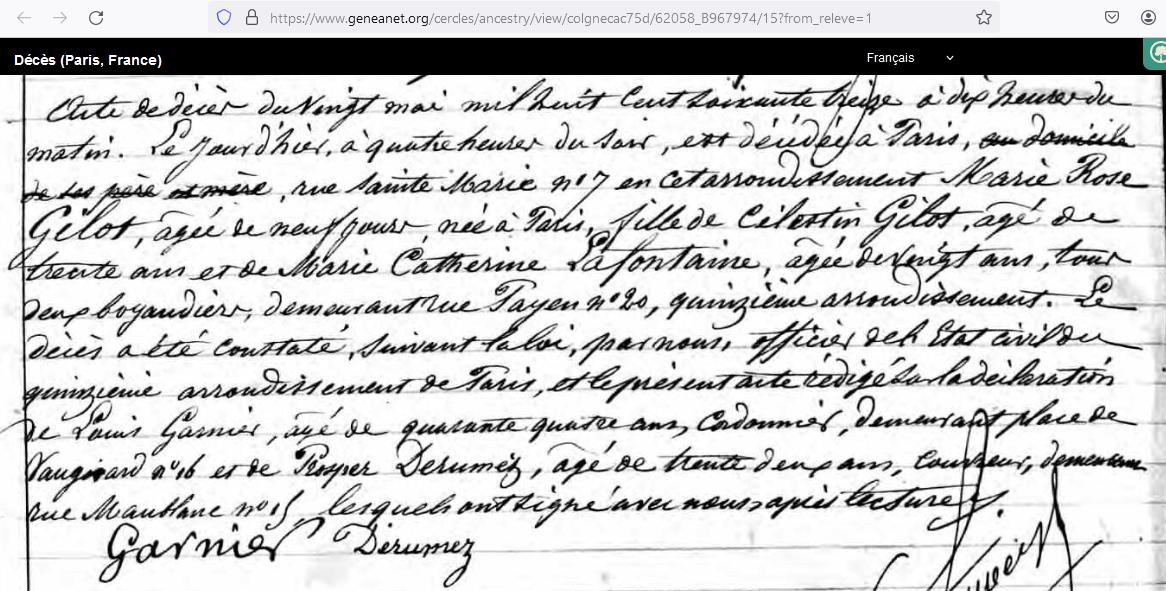 https://www.geneanet.org/cercles/ancestry/view/colgnecac75d/62058_B967974/15?from_releve=1
Décès (Paris, France)
Français
Acte de décès du Vingt mai mil huit Cent soixante treize à dix heures du
matin. Le jour d'hier, à quatre heures du soir, est décédée à Paris, au domicile
de ses père et mère, rue Sainte Marie n° 7 en cet arrondissement Marie Rose
Gilot, âgée de neuf jours, née à Paris, fille de Célestin Gilot, âgé de
trente ans et de Marie Catherine Lafontaine, âgée de Vingt ans, tous
deux boyaudiers, demeurant rue Payen n° 20, quinzième arrondissement. Le
décès a été constaté, suivant la loi, par nous, officier de l'Etat civil du
quinzième arrondissement de Paris, et le présent acte rédigé sur la déclaration
de Louis Garnier, âgé de quarante quatre ans, Cordonnier, demeurant place de
Vaugirard n° 16 et de Prosper Derumez, âgé de trente deux ans, demeurant
rue Maublanc n° 15 lesquels ont signé avec nous après lecture
Garnier Derumez